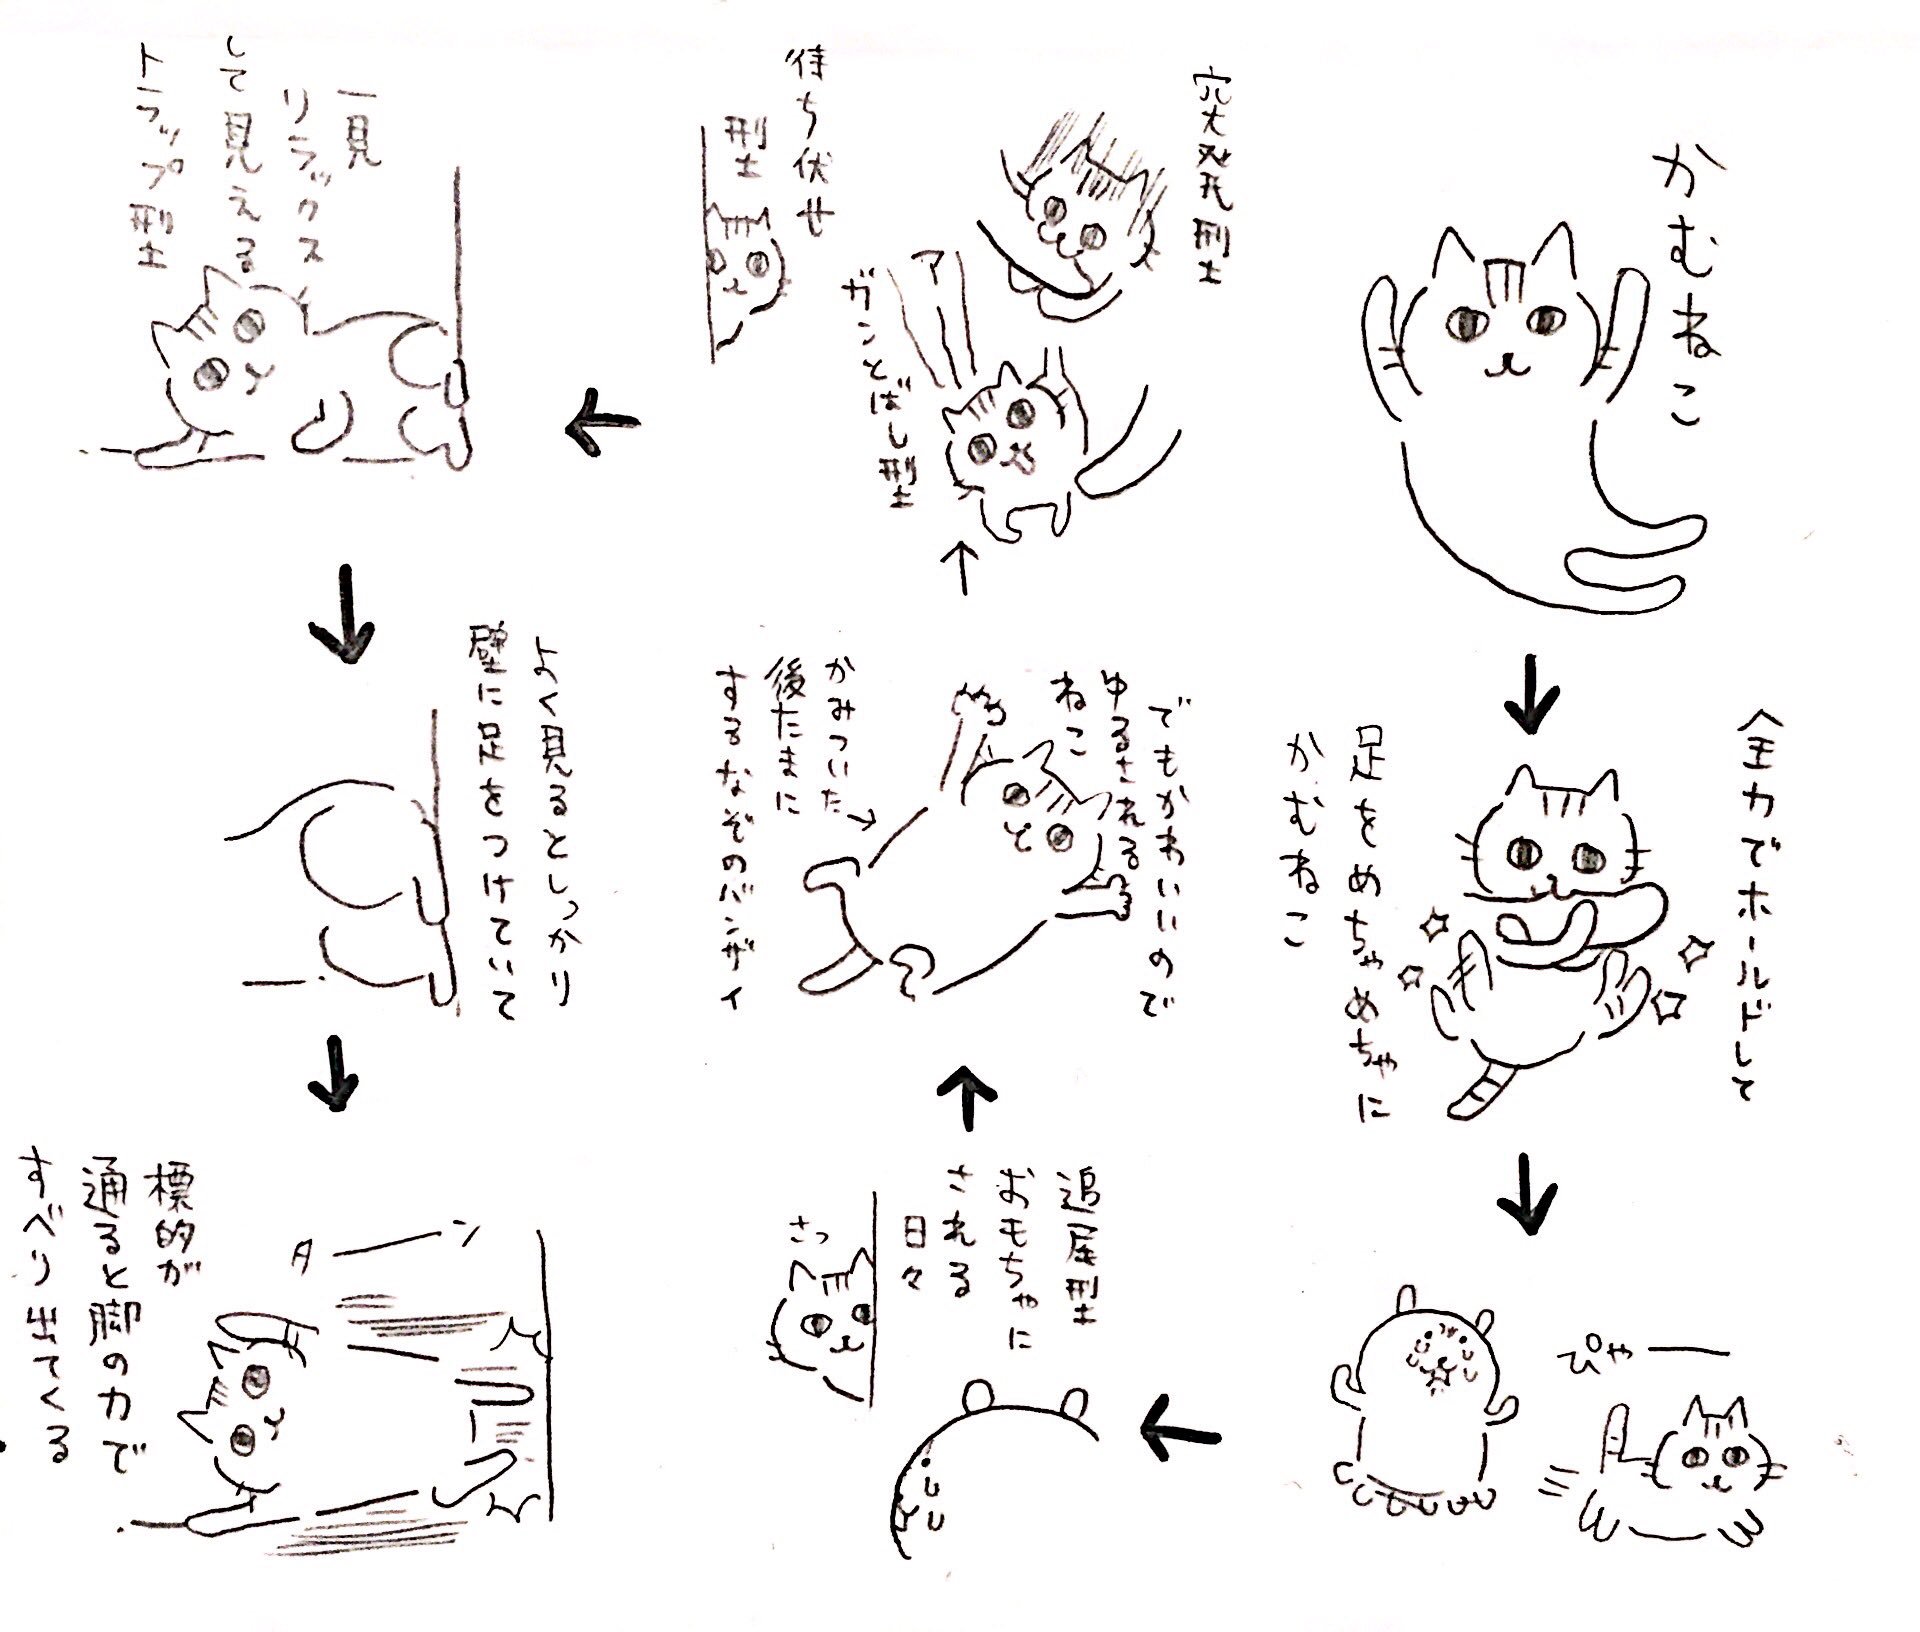 かむねこ
全力でホールドして
足をめちゃめちゃに
かむねこ
ぴゃー
追尾型
おもちゃに
される
日々
さっ
でもかわいいので
ゆるされる
ねこ
かみついた
後たまに
するなぞのバンザイ
突発型
アー
ガンとばし型
待ち伏せ
型
一見
リラックス
して見える
トラップ型
よく見るとしっかり
壁に足をつけていて
標的が
通ると脚の力で
すべり出てくる
ターン